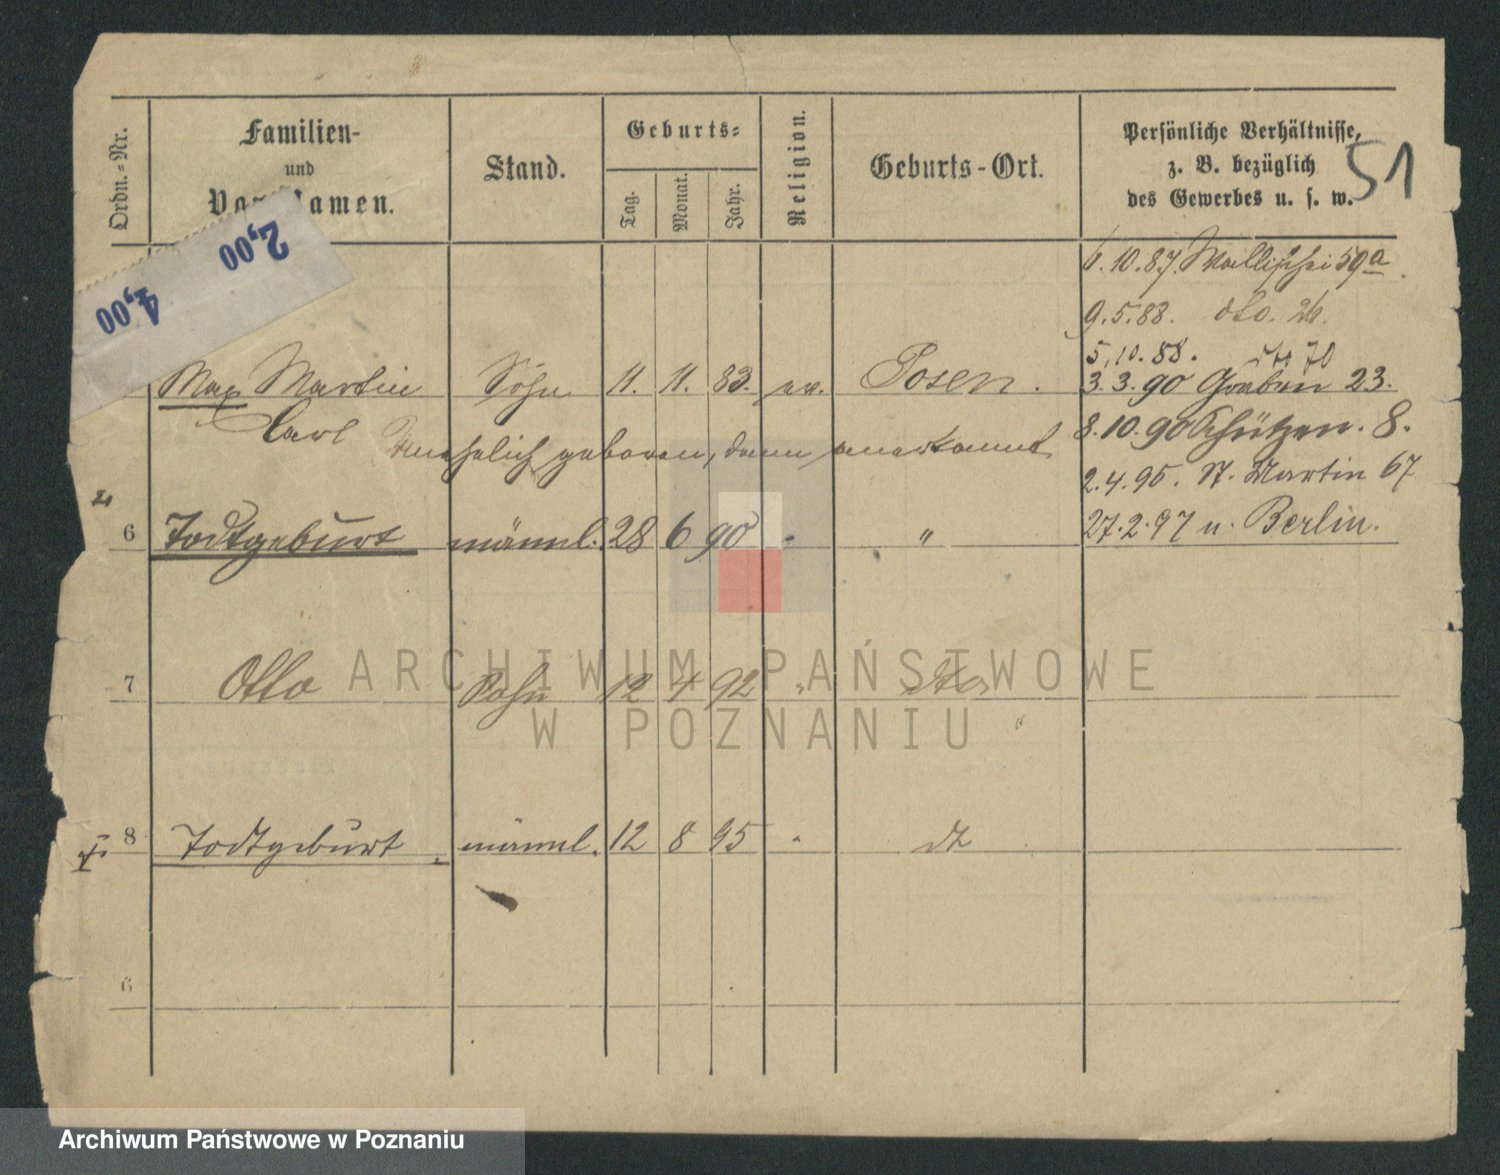 Ordn.-Nr.
Familien-
und
Vor-Namen.
Stand.
Geburts-
Tag.
Monat.
Jahr.
Religion.
Geburts-Ort.
Persönliche Verhältnisse,
z. B. bezüglich
des Gewerbes u. s. w.
51
2,00
4,00
6.10.87. Wallischei 59a
9.5.88. dto. 26.
5.10.88. 70
Max Martin Sohn 11. 11. 83. ev. Posen.
3.3.90 Graben 23.
Carl
Unehelich geboren, dann anerkannt
8.10.90 Schützen. 8.
2.4.95. St. Martin 67
6 Todtgeburt männl. 28 6 90 " "
27.2.97 n. Berlin.
7 Otto Sohn 12 4 92 " dto
8 Todtgeburt männl. 12 8 95 " dt
6
ARCHIWUM PAŃSTWOWE
W POZNANIU
Archiwum Państwowe w Poznaniu